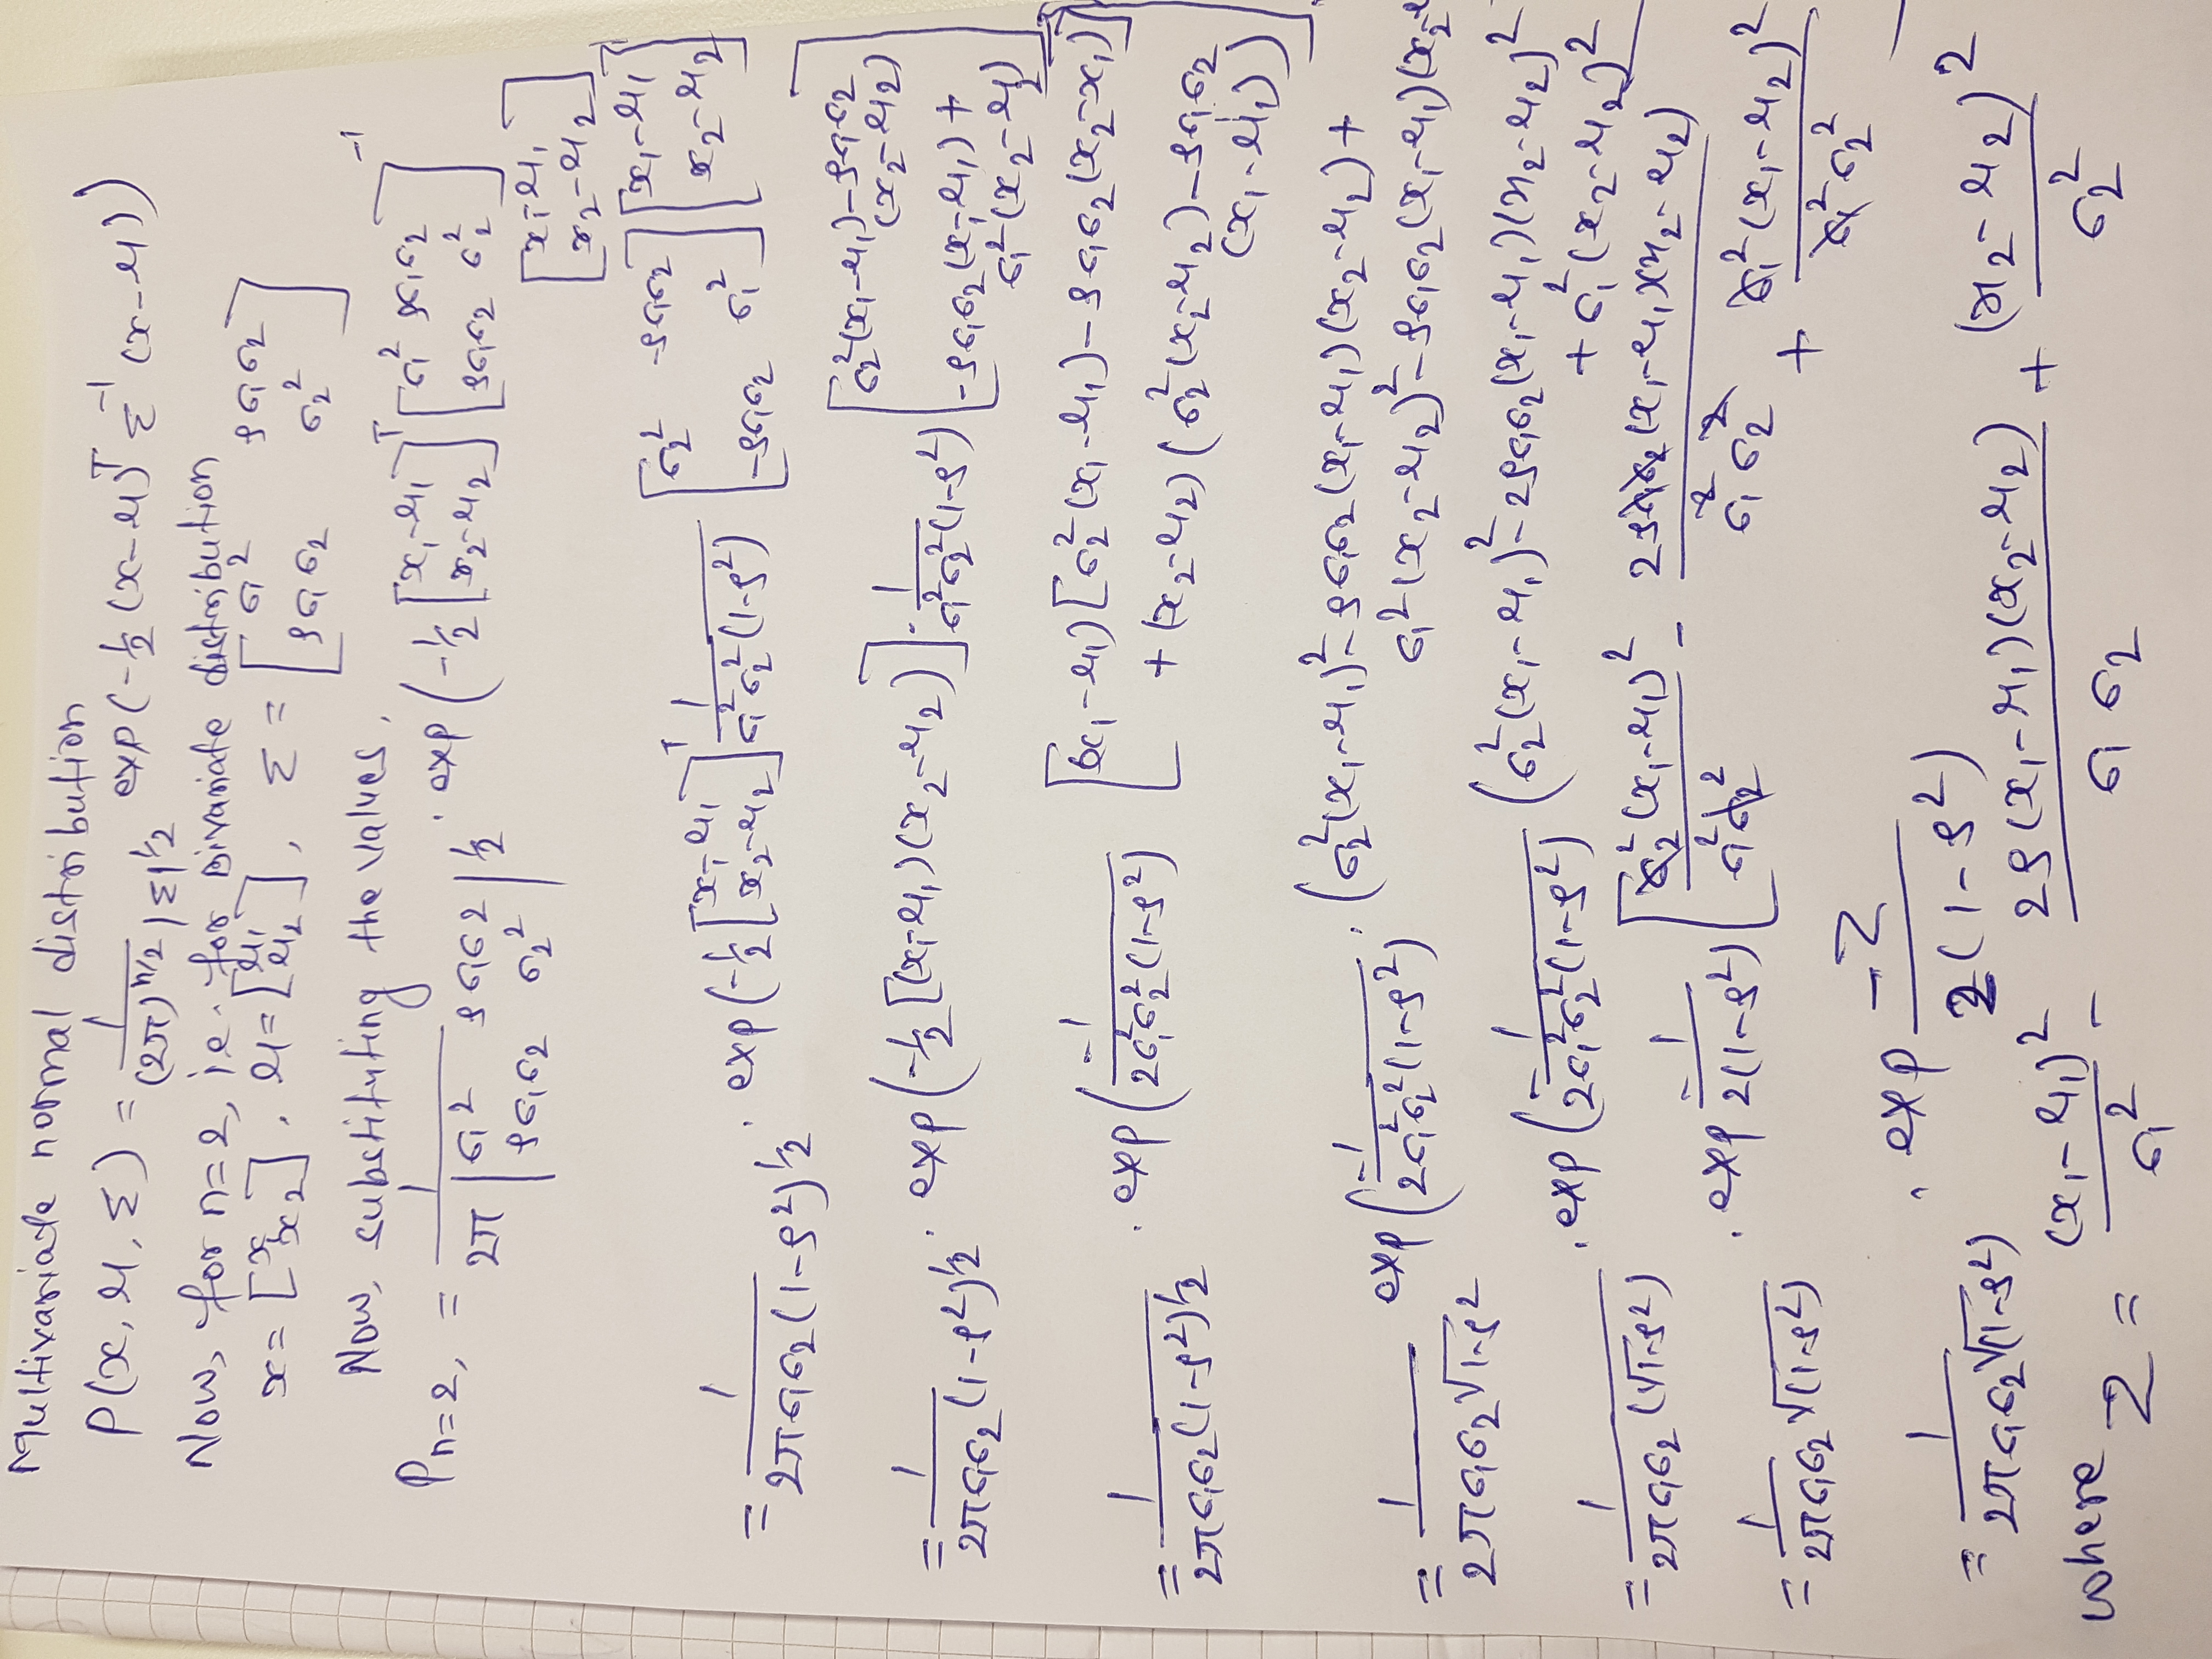 Multivariate normal distribution
P(x, μ, Σ) = 1/(2π)^{n/2} |Σ|^{1/2} exp(-1/2 (x-μ)^T Σ^{-1} (x-μ))
Now, for n=2, i.e. for Bivariate distribution
x = [x₁ x₂], μ = [μ₁ μ₂], Σ = [σ₁² ρσ₁σ₂ ρσ₁σ₂ σ₂²]
Now, substituting the values,
P_{n=2}, = 1/2π |σ₁² ρσ₁σ₂ ρσ₁σ₂ σ₂²|^{1/2} . exp(-1/2 [x₁-μ₁ x₂-μ₂]^T [σ₁² ρσ₁σ₂ ρσ₁σ₂ σ₂²]^{-1}
[x₁-μ₁ x₂-μ₂]
= 1/2πσ₁σ₂(1-ρ²)^{1/2} . exp(-1/2 [x₁-μ₁ x₂-μ₂]^T 1/σ₁²σ₂²(1-ρ²) [σ₂² -ρσ₁σ₂ -ρσ₁σ₂ σ₁²] [x₁-μ₁ x₂-μ₂]
= 1/2πσ₁σ₂(1-ρ²)^{1/2} . exp(-1/2 [(x₁-μ₁)(x₂-μ₂)] . 1/σ₁²σ₂²(1-ρ²) [σ₂²(x₁-μ₁)-ρσ₁σ₂(x₂-μ₂) -ρσ₁σ₂(x₁-μ₁)+σ₁²(x₂-μ₂)]
= 1/2πσ₁σ₂(1-ρ²)^{1/2} . exp(-1/2σ₁²σ₂²(1-ρ²) [(x₁-μ₁)[σ₂²(x₁-μ₁)-ρσ₁σ₂(x₂-x₁)]
+(x₂-μ₂)(σ₂²(x₂-μ₂)-ρσ₁σ₂(x₁-μ₁))]
= 1/2πσ₁σ₂√1-ρ² exp(-1/2σ₁²σ₂²(1-ρ²) . (σ₂²(x₁-μ₁)²-ρσ₁σ₂(x₁-μ₁)(x₂-μ₂)+
σ₁²(x₂-μ₂)²-ρσ₁σ₂(x₁-μ₁)(x₂-μ
= 1/2πσ₁σ₂(√1-ρ²) . exp(-1/2σ₁²σ₂²(1-ρ²) (σ₂²(x₁-μ₁)²-2ρσ₁σ₂(x₁-μ₁)(x₂-μ₂)
+σ₁²(x₂-μ₂)²
= 1/2πσ₁σ₂√(1-ρ²) . exp -1/2(1-ρ²) [σ₂²(x₁-μ₁)²/σ₁²σ₂² - 2ρσ₁σ₂(x₁-μ₁)(x₂-μ₂)/σ₁²σ₂²
+ σ₁²(x₁-μ₂)²/σ₁²σ₂²
= 1/2πσ₁σ₂√(1-ρ²) . exp -Z/2(1-ρ²)
where Z = (x₁-μ₁)²/σ₁² - 2ρ(x₁-μ₁)(x₂-μ₂)/σ₁σ₂ + (x₂-μ₂)²/σ₂²